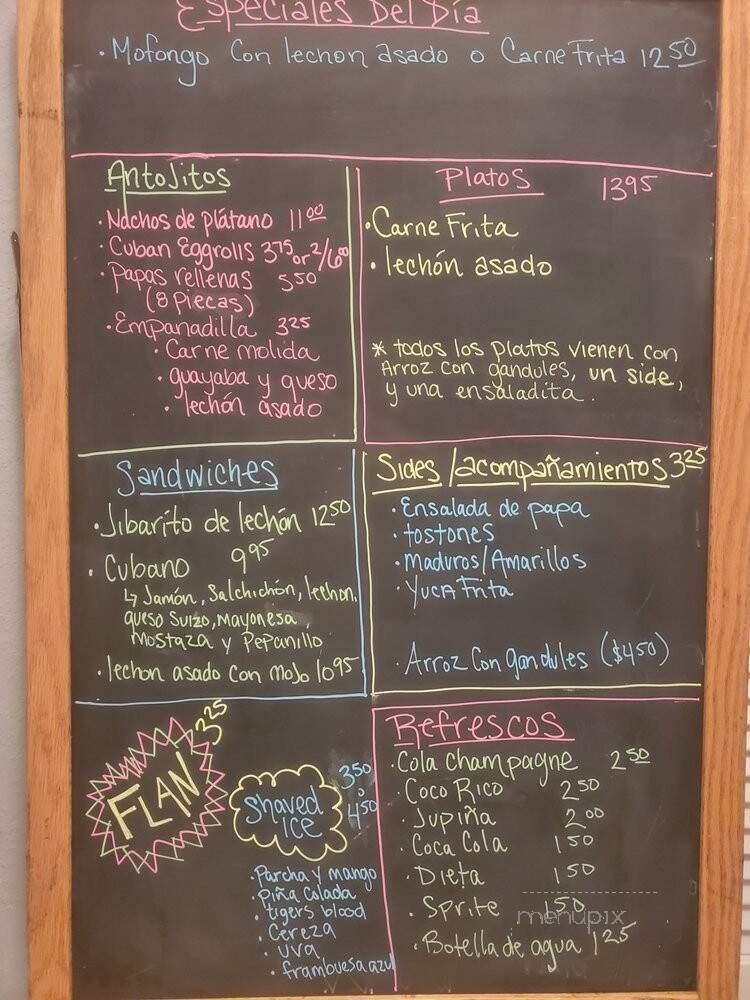 Especiales Del Día
· Mofongo Con lechon asado o Carne Frita 12 50
Antojitos
· Nachos de plátano 11 00
· Cuban Eggrolls 3 75 or 2/6 00
· Papas rellenas 5 50
(8 Piecas)
· Empanadilla 3 25
· Carne molida
· guayaba y queso
· lechón asado
Platos 13 95
· Carne Frita
· lechón asado
* todos los platos vienen con
Arroz con gandules, un side,
y una ensaladita.
Sandwiches
· Jibarito de lechón 12 50
· Cubano 9 95
↳ Jamón, Salchichón, lechon,
queso Suizo, Mayonesa,
Mostaza y Pepanillo
· lechon asado con mojo 10 95
Sides/acompañamientos 3 25
· Ensalada de papa
· tostones
· Maduros/Amarillos
· Yuca Frita
· Arroz Con gandules ($4 50)
FLAN 3 25
Shaved
ICE
3 50
o
4 50
· Parcha y mango
· Piña Colada
· tigers blood
· Cereza
· uva
· frambuesa azul
Refrescos
· Cola champagne 2 50
· Coco Rico 2 50
· Jupiña 2 00
· Coca Cola 1 50
· Dieta 1 50
· Sprite 1 50
· Botella de agua 1 25
menupix